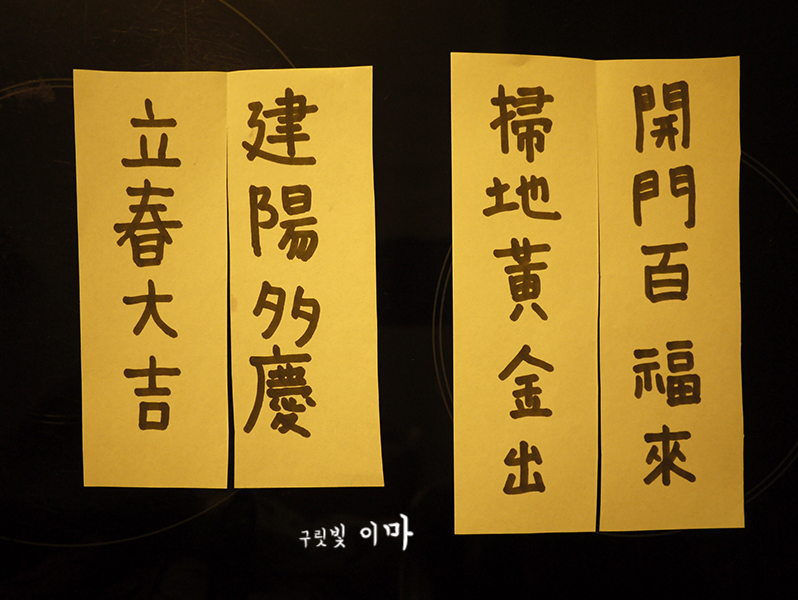 立春大吉
建陽多慶
掃地黃金出
開門百福來
구릿빛 이마